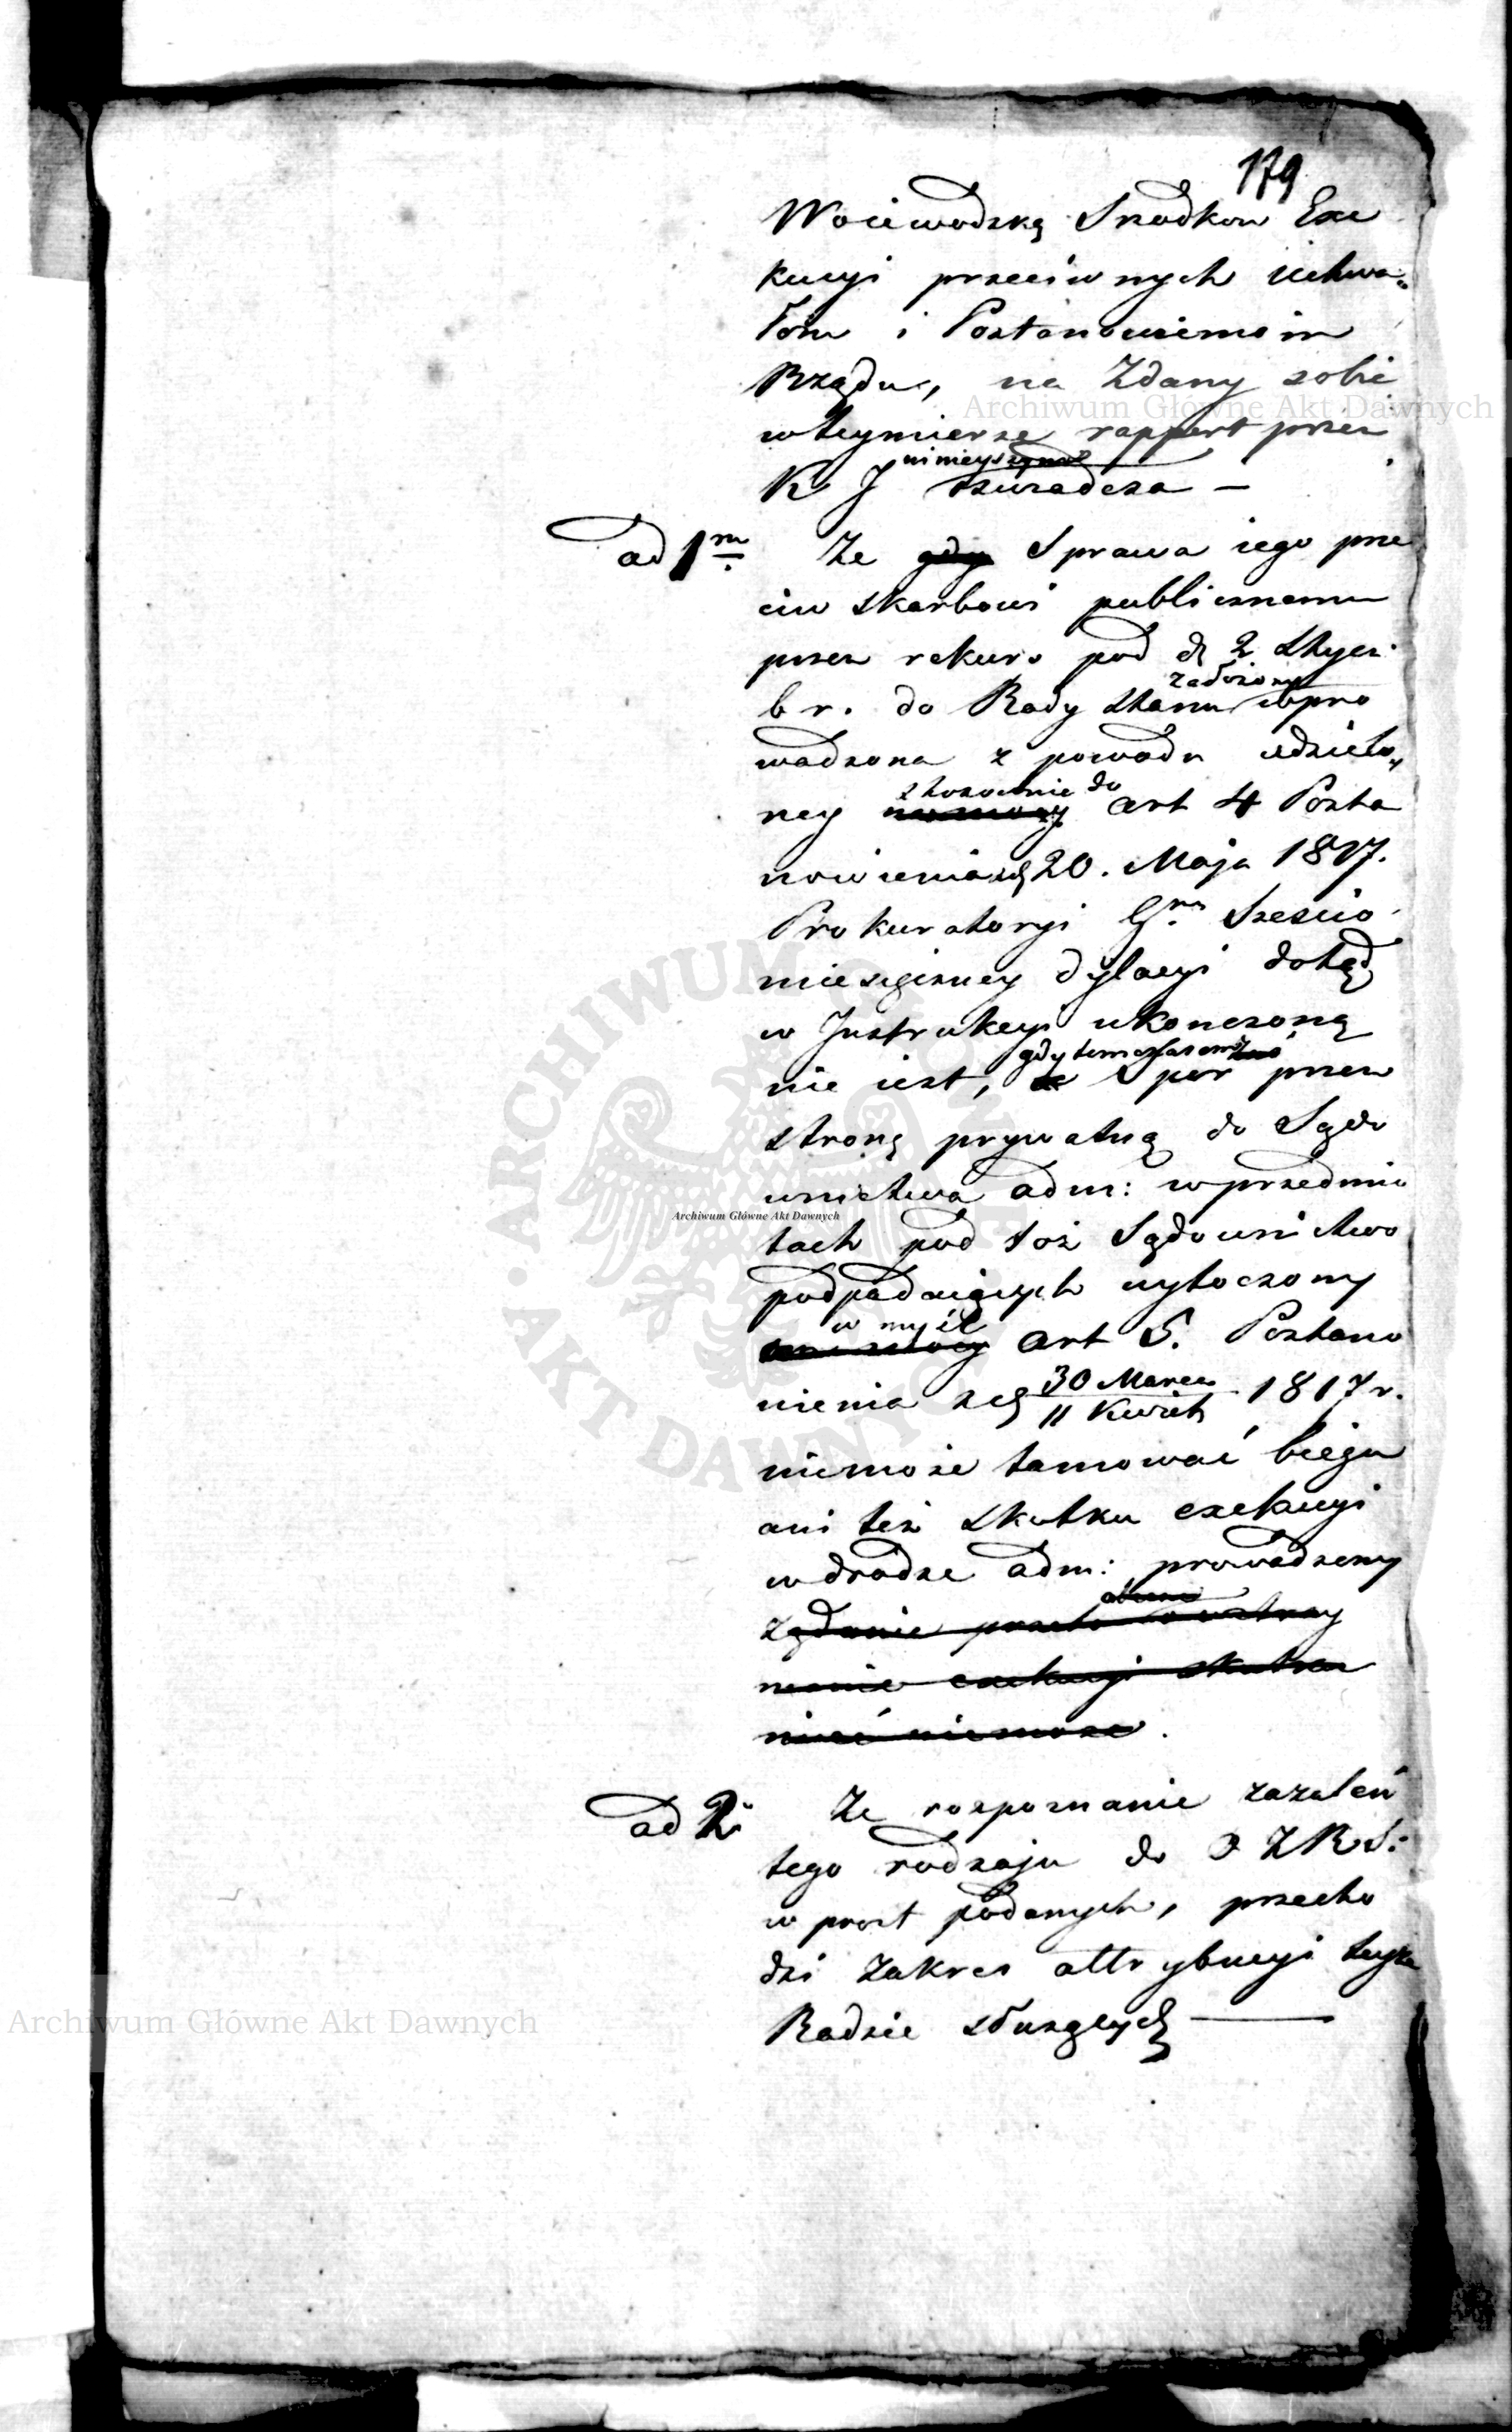 179
Woiewodzką Srzodkow Exe
kucyi przeciwnych uchwa„
łom i Postanowieniom
Rządu, na zdany sobie
w teymierze rapport przez
ninieyszym
K J oświadcza —
ad 1m. Ze gdy Sprawa iego prze
ciw skarbowi publicznemu
przez rekurs pod d 2 Stycz:
założony
b r. do Rady Stanu wpro
wadzona z powodu udzielo„
stosownie do
ney na mocy art 4 Posta
nowienia zd 20. Maja 1817.
Prokuratoryi Gen. Sześcio
miesięczney dylacyi dotąd
w Instrukcyi ukonczoną
gdy tymczasem
nie iest, Spor przez
stronę prywatną do Sądo
wnictwa adm: w przedmio
tach pod toż Sądownictwo
podpadaiących wytoczony
w myśl
na mocy art 5. Postano
wienia z d 30 Marca 1817 r.
11 Kwiet
niemoże tamować biegu
ani też skutku exekucyi
w drodze adm: prowadzoney
żądanie przeto o wstrzy
manie exekucyi skutku
mieć niemoże.
ad 2 Ze rozpoznanie zażaleń
tego rodzaju do O Z R S:
w prost podanych, przecho
dzi zakres attrybucyi teyże
Radzie służących —
Archiwum Główne Akt Dawnych
Archiwum Główne Akt Dawnych
Archiwum Główne Akt Dawnych
ARCHIWUM GŁÓWNE • AKT DAWNYCH •